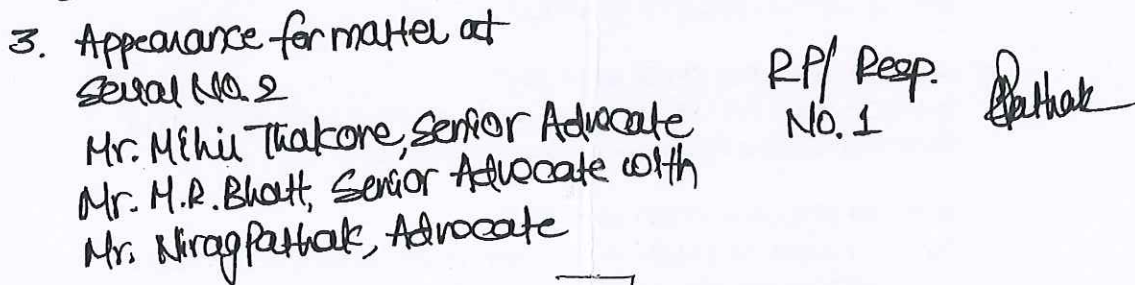 3. Appearance for matter at
Serial No. 2
Mr. Mihir Thakore, Senior Advocate
Mr. M.R. Bhatt, Senior Advocate with
Mr. Nirag Pathak, Advocate
RP/ Resp.
No. 1
Pathak